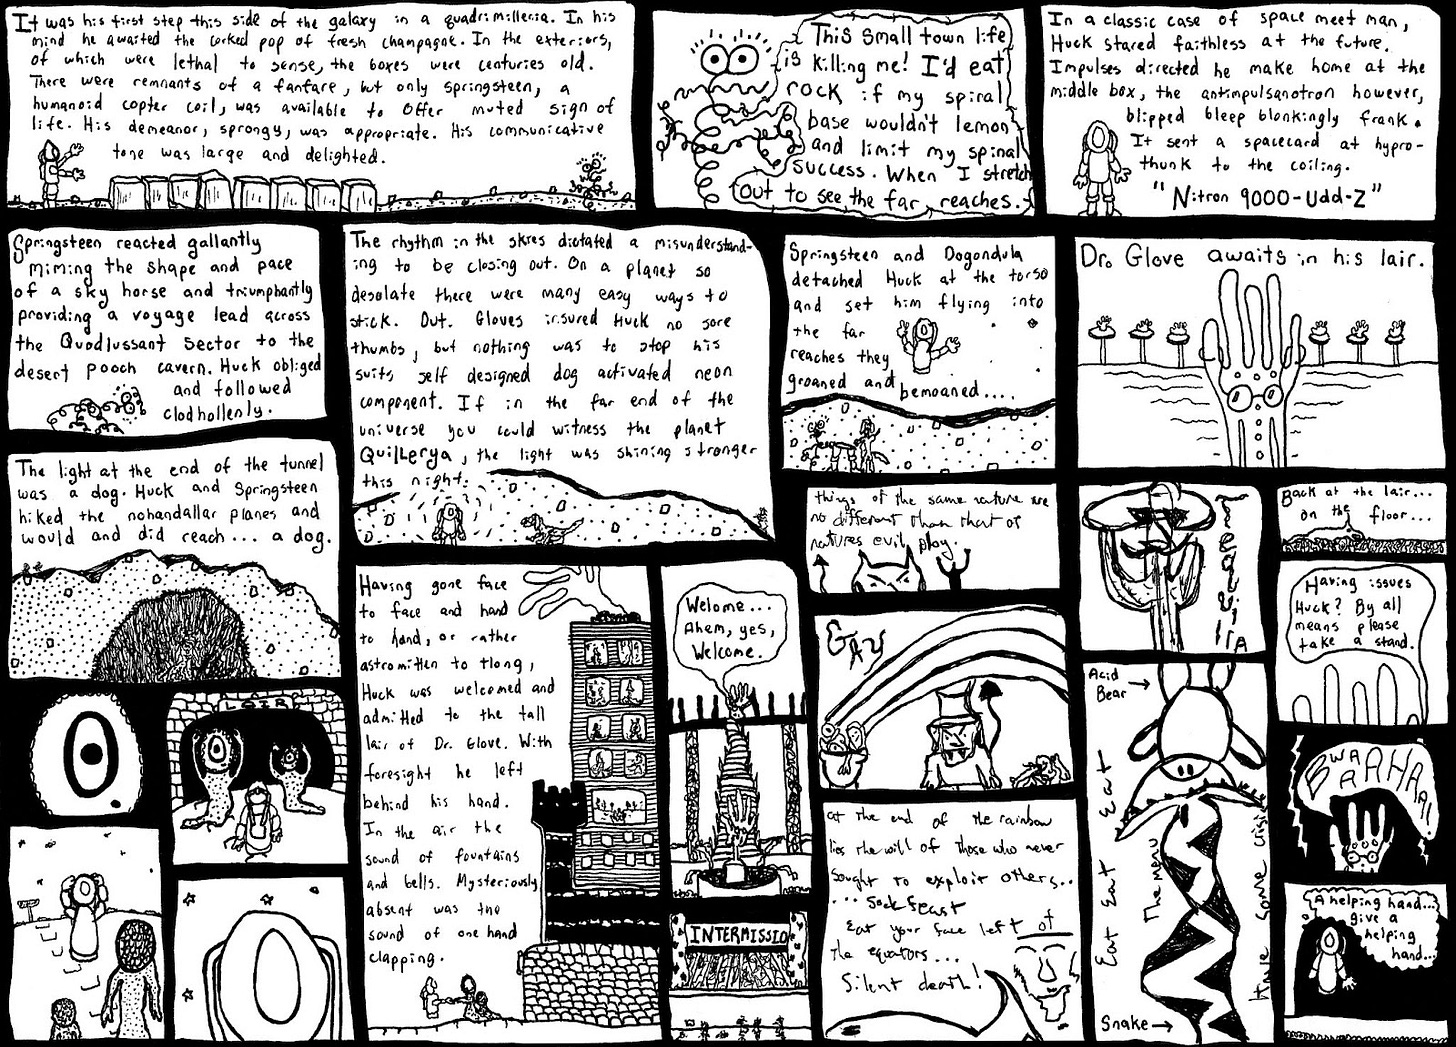 It was his first step this side of the galaxy in a quadrimillenia. In his
mind he awaited the corked pop of fresh champagne. In the exteriors,
of which were lethal to sense, the boxes were centuries old.
There were remnants of a fanfare, but only Springsteen, a
humanoid copter coil, was available to offer muted sign of
life. His demeanor, sprongy, was appropriate. His communicative
tone was large and delighted.
This small town life
is killing me! I'd eat
rock if my spiral
base wouldn't lemon
and limit my spinal
success. When I stretch
out to see the far reaches.
In a classic case of space meet man,
Huck stared faithless at the future.
Impulses directed he make home at the
middle box, the antimpulsanotron however,
blipped bleep blonkingly frank.
It sent a spacecard at hypro-
thunk to the coiling.
"Nitron 9000-Udd-Z"
Springsteen reacted gallantly
miming the shape and pace
of a sky horse and triumphantly
providing a voyage lead across
the Quodlussant Sector to the
desert pooch cavern. Huck obliged
and followed
clodhollenly.
The rhythm in the skies dictated a misunderstand-
ing to be closing out. On a planet so
desolate there were many easy ways to
stick. Out. Gloves insured Huck no sore
thumbs, but nothing was to stop his
suits self designed dog activated neon
component. If in the far end of the
universe you could witness the planet
Quillerya, the light was shining stronger
this night.
Springsteen and Dogondula
detached Huck at the torso
and set him flying into
the far
reaches they
groaned and bemoaned....
Dr. Glove awaits in his lair.
The light at the end of the tunnel
was a dog. Huck and Springsteen
hiked the nohandallar planes and
would and did reach... a dog.
LAIR
Having gone face
to face and hand
to hand, or rather
astromitten to tlong,
Huck was welcomed and
admitted to the tall
lair of Dr. Glove. With
foresight he left
behind his hand.
In the air the
sound of fountains
and bells. Mysteriously
absent was the
sound of one hand
clapping.
Welome...
Ahem, yes,
Welcome.
INTERMISSIO
things of the same nature are
no different than that of
natures evil play.
GAY
at the end of the rainbow
lies the will of those who never
sought to exploit others..
... Sockfeast
Eat your face left of
the equators...
Silent death!
Tequila
Acid
Bear
Eat Eat Eat
The menu
Have some
Snake
Back at the lair...
on the floor...
Having issues
Huck? By all
means please
take a stand.
BWARRAHAA!
A helping hand...
give a
helping
hand...